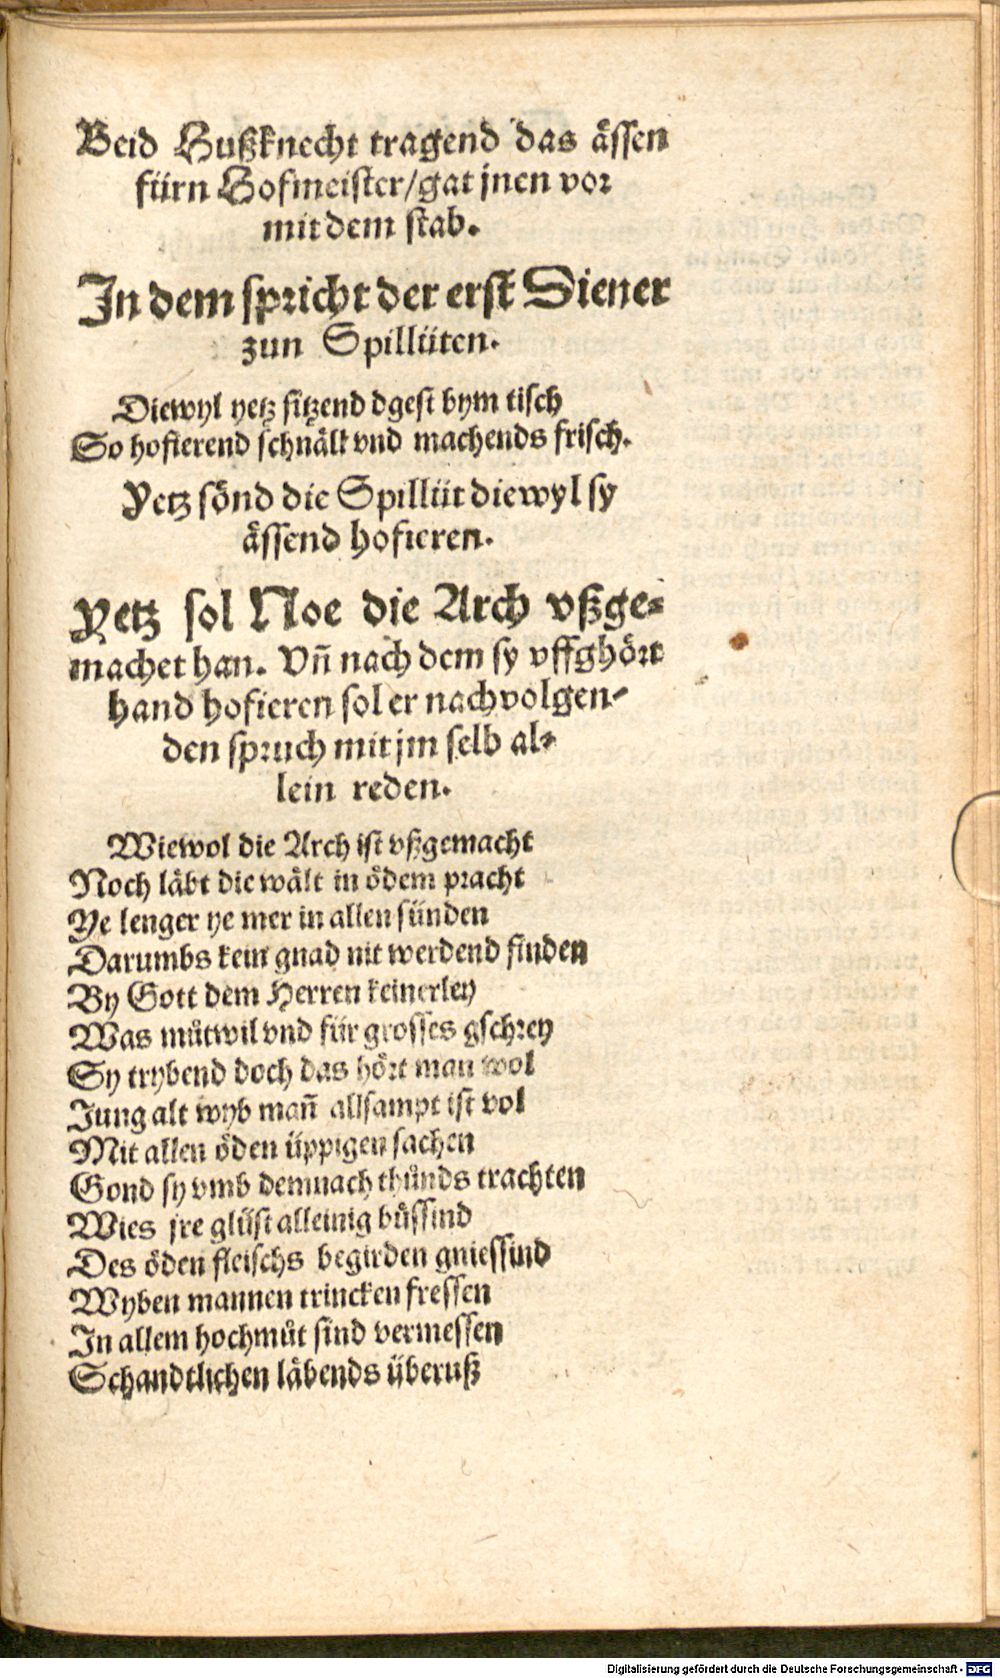 Beid Hußknecht tragend das ässen
fürn Hofmeister/gat jnen vor
mit dem stab.
In dem spricht der erst Diener
zun Spillüten.
Diewyl yetz sitzend dgest bym tisch
So hofierend schnäll vnd machends frisch.
Yetz sönd die Spillüt diewyl sy
ässend hofieren.
Yetz sol Noe die Arch vßge⸗
machet han. Vñ nach dem sy vffghört
hand hofieren sol er nachuolgen⸗
den spruch mit jm selb al⸗
lein reden.
Wiewol die Arch ist vßgemacht
Noch läbt die wält in ödem pracht
Ye lenger ye mer in allen sünden
Darumbs kein gnad nit werdend finden
By Gott dem Herren keinerley
Was můtwil vnd für grosses gschrey
Sy trybend doch das hört man wol
Jung alt wyb mañ allsampt ist vol
Mit allen öden üppigen sachen
Gond sy vmb demnach thůnds trachten
Wies jre glüst alleinig bůssind
Des öden fleischs begirden gniessind
Wyben mannen trincken fressen
In allem hochmůt sind vermessen
Schandtlichen läbends überuß
Digitalisierung gefördert durch die Deutsche Forschungsgemeinschaft - DFG